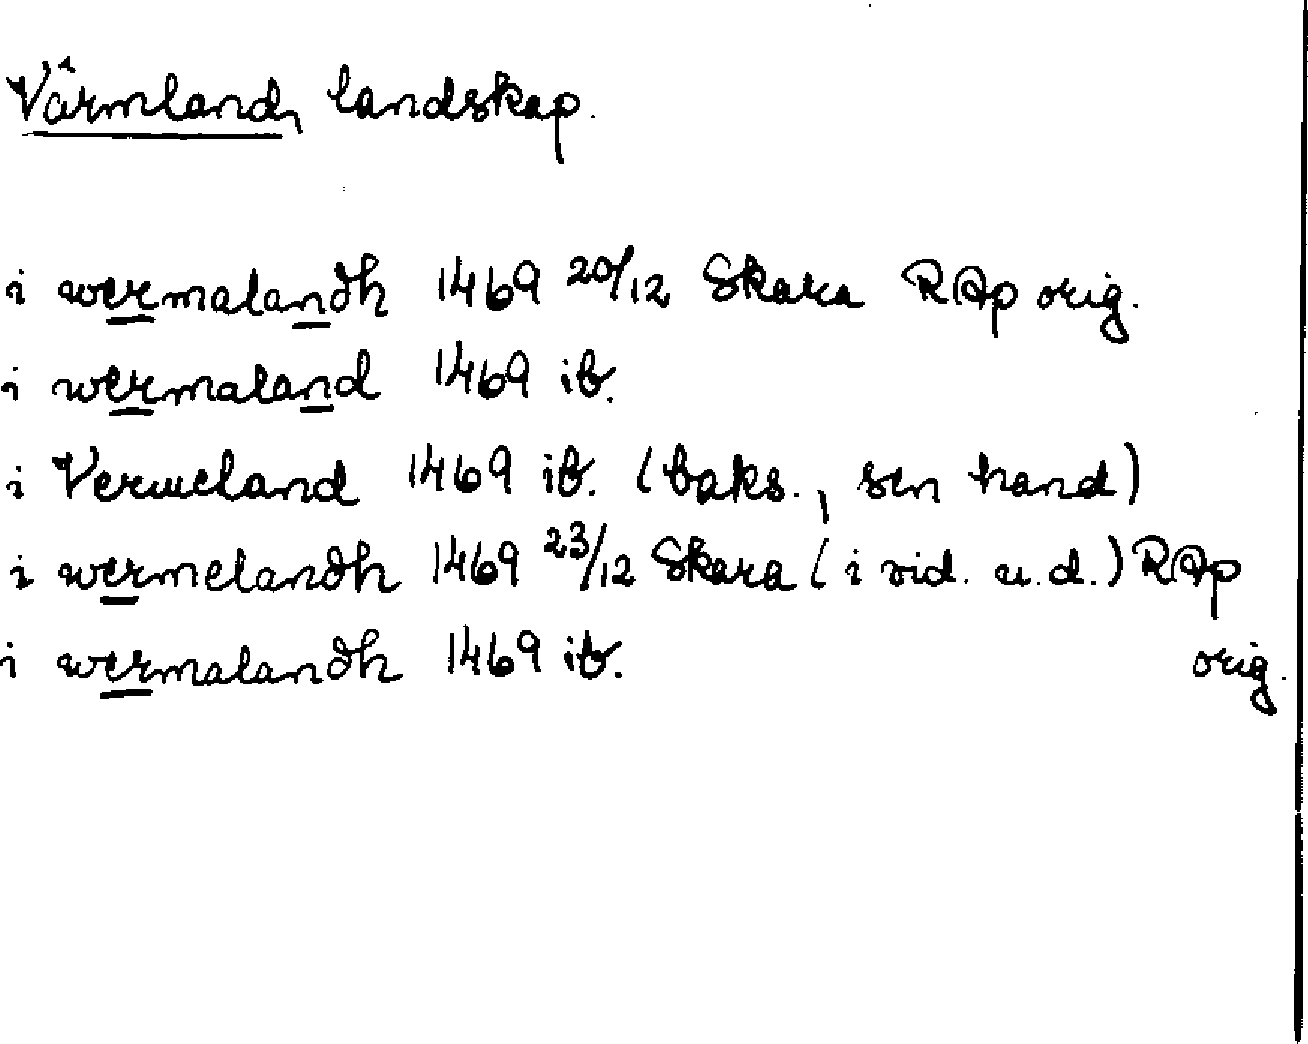 Värmland, landskap.
i wermalandh 1469 20/12 Skara RAp orig.
i wermaland 1469 ib.
i Vermeland 1469 ib. (baks., sen hand)
i wermelandh 1469 23/12 Skara (i vid. u.d.) RAp
i wermalandh 1469 ib. orig.